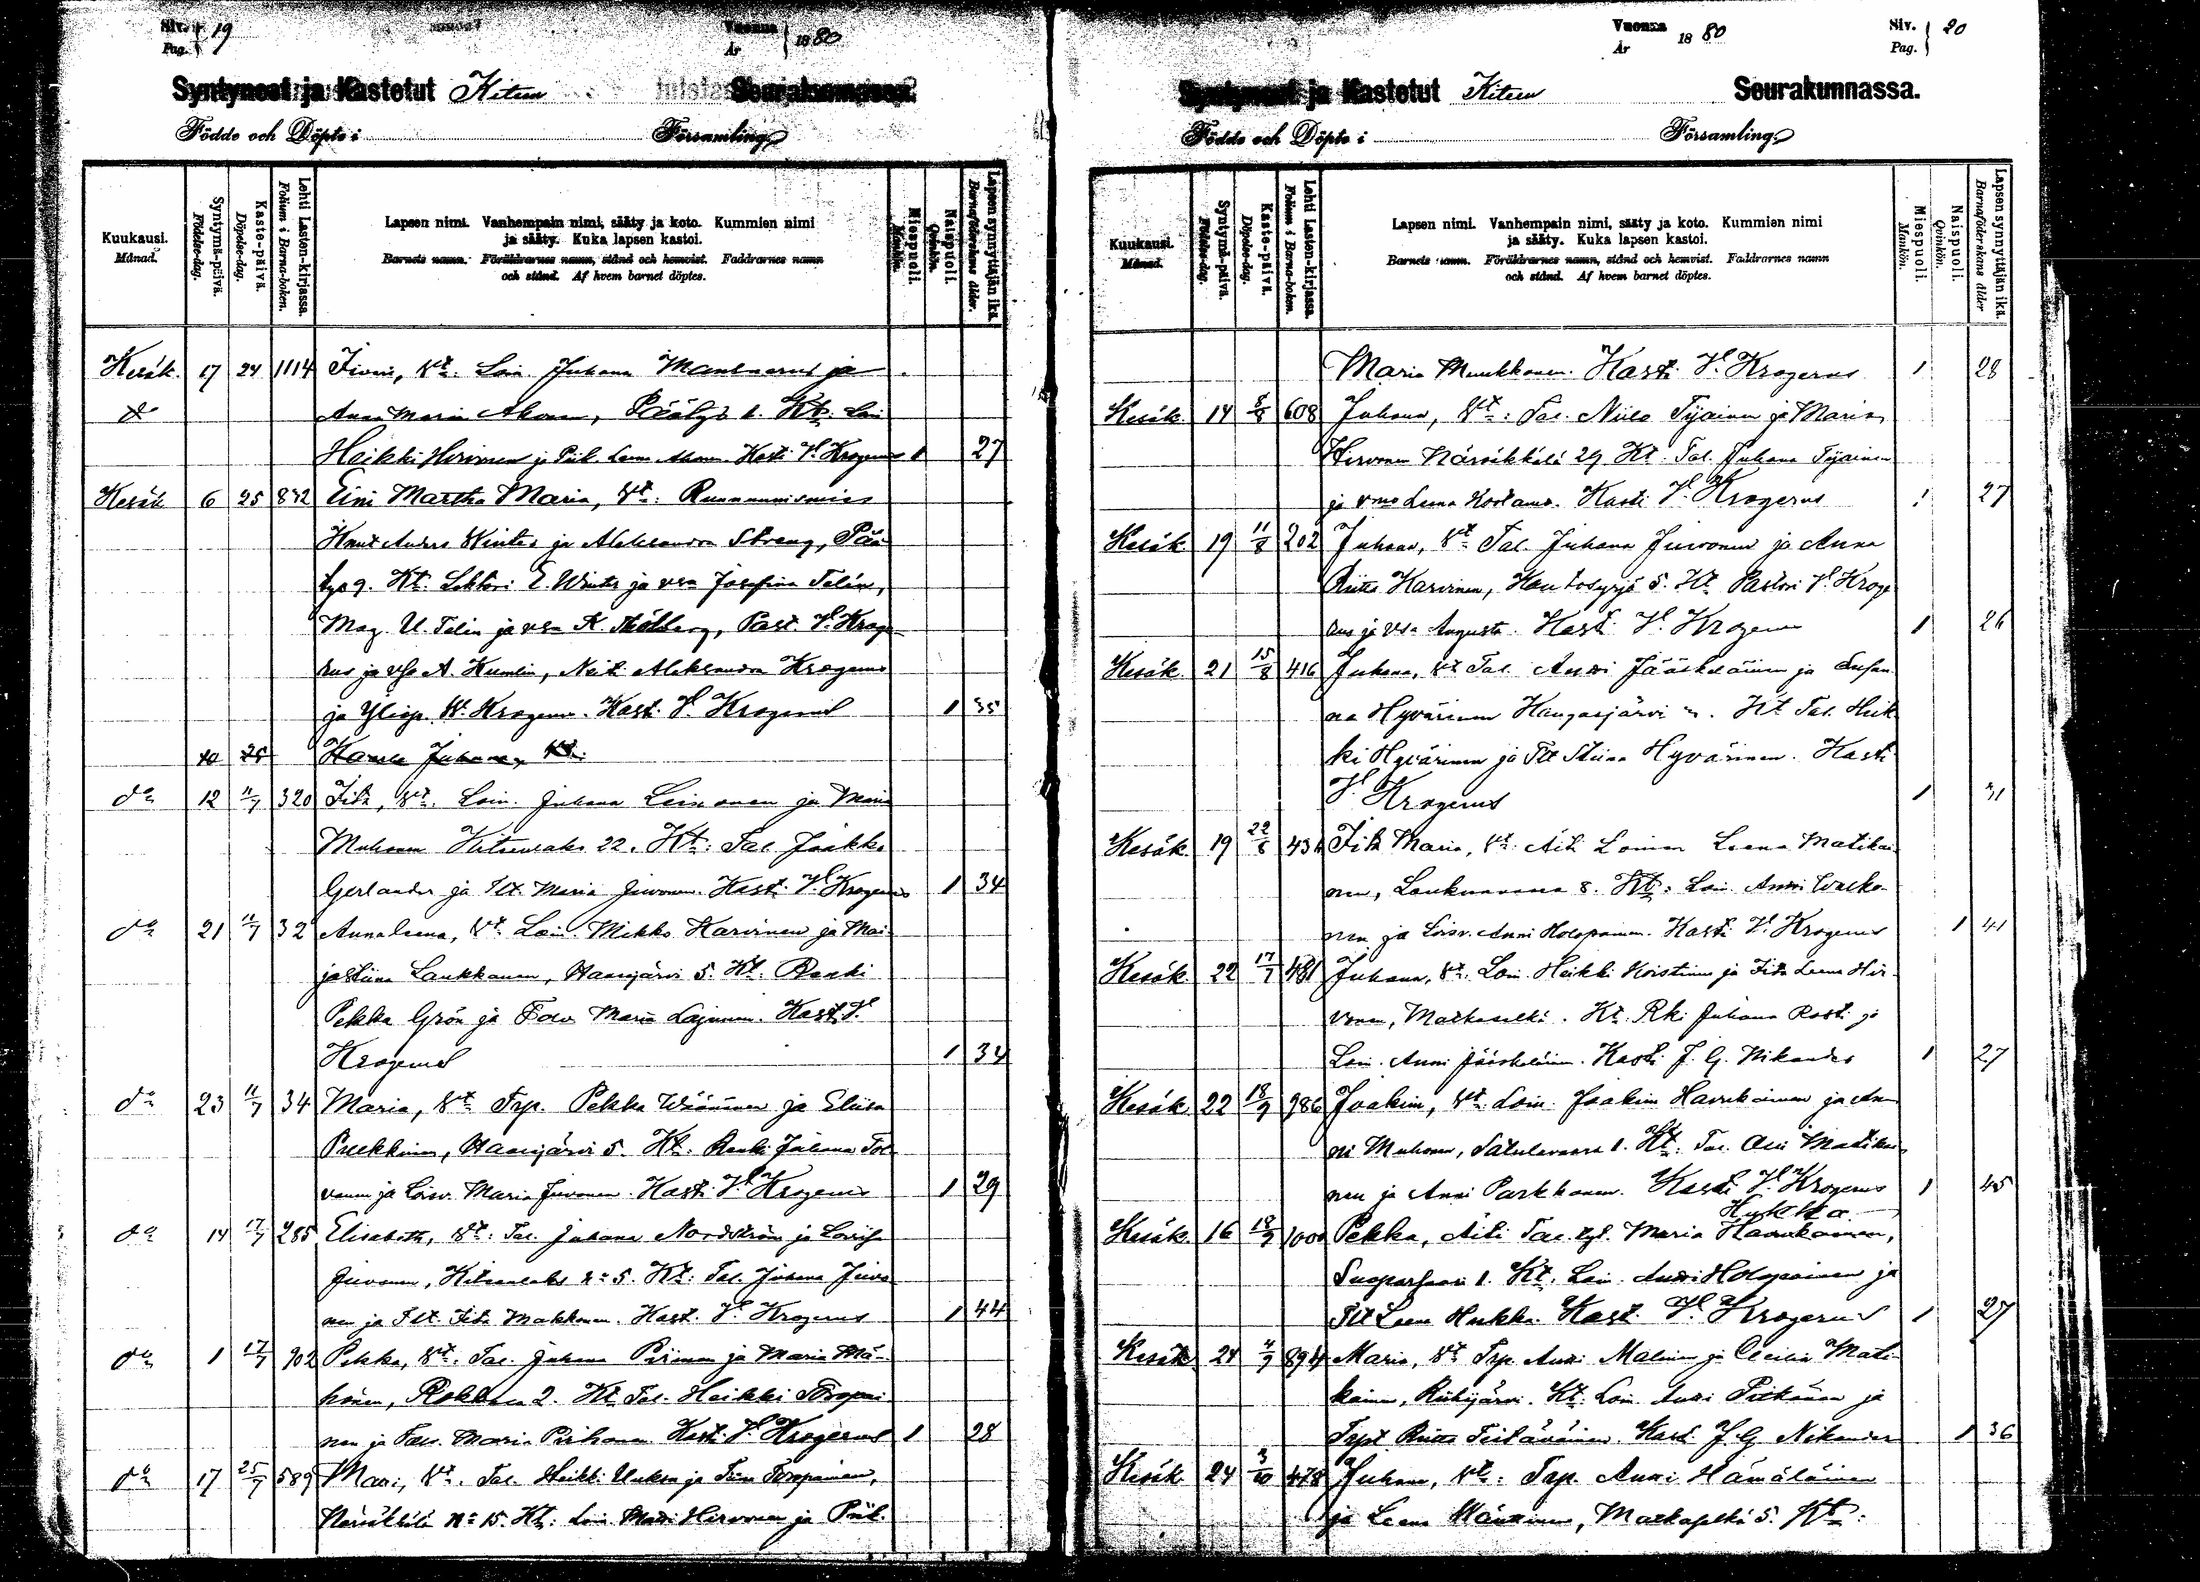 Siv. 19
Pag.
Vuonna 1880
År
Syntyneet ja Kastetut Kiteen Seurakunnassa.
Födde och Döpte i Församling
Kuukausi.
Månad.
Syntymä-päivä.
Födelse-dag.
Kaste-päivä.
Döpelse-dag.
Lehti Lasten-kirjassa.
Folium i Barna-boken.
Lapsen nimi. Vanhempain nimi, sääty ja koto. Kummien nimi
ja sääty. Kuka lapsen kastoi.
Barnets namn. Föräldrarnes namn, stånd och hemvist. Faddrarnes namn
och stånd. Af hvem barnet döptes.
Miespuoli.
Mankön.
Naispuoli.
Qvinkön.
Lapsen synnyttäjän ikä.
Barnaföderskans ålder.
Kesäk. 17 24 1114 Iivari, Vt: Lois. Juhana ja
Anna Maria Ahonen, 1. Kt. Loi
Heikki Hirvonen ja Piik. Leena Ahonen Kasti V. Krogerus 1 27
Kesäk 6 25 832 Eini Martha Maria, Vt:
Knut Anders Winter ja Aleksandra Streng, Pää-
9. Kt. Lehtori E. Winter ja vsa Josefina Telén,
Mag. U. Telén ja vsa K. Past. V. Kroge
rus ja vsa A. Humlin, Neit Aleksandra Krogerus
ja Yliop. W. Krogerus. Kast. V. Krogerus 1 35
25 Juhana, Vt:
do 12 11/7 320 Iita, Vt. Lois. Juhana Leinonen ja Maria
Muhonen Kiteenlaks 22. Kt: Tal. Jaakko
Gerlander ja Tlt. Maria Juvonen. Kast. V. Krogerus 1 34
do 21 11/7 32 Anna Leena, Vt. Lois. Mikko Karvinen ja Mai-
ja Stiina Laukkanen, Haarajärvi 5. Kt. Renki
Pekka Grön ja Maria Lajunen. Kast. V.
Krogerus 1 34
do 23 11/7 34 Maria, Vt: Trp. Pekka Wäänänen ja Eliisa
Haarajärvi 5. Kt. Renki Juhana Tol-
vanen ja Loisv. Maria Juvonen. Kasti V. Krogerus 1 29
do 14 17/7 285 Elisabeth, Vt: Tal. Juhana Nordström ja Lovisa
Juvonen, Kiteenlaks No 5. Kt: Tal. Juhana Juvo
nen ja Tlt. Iita Makkonen. Kast. V. Krogerus 1 44
do 1 17/7 702 Pekka, Vt: Tal. Juhana Piironen ja Maria Mä-
könen, 2. Kt Tal. Heikki Törönpai-
nen ja Maria Pirhonen Kasti V. Krogerus 1 28
do 17 25/7 589 Mari, Vt. Tal. Heikki ja
Närsäkkälä No 15. Kt: Lois. Matti Hirvonen ja Piik.
Vuonna 1880
År
Siv. 20
Pag.
Syntyneet ja Kastetut Kiteen Seurakunnassa.
Födde och Döpte i Församling
Kuukausi.
Månad.
Syntymä-päivä.
Födelse-dag.
Kaste-päivä.
Döpelse-dag.
Lehti Lasten-kirjassa.
Folium i Barna-boken.
Lapsen nimi. Vanhempain nimi, sääty ja koto. Kummien nimi
ja sääty. Kuka lapsen kastoi.
Barnets namn. Föräldrarnes namn, stånd och hemvist. Faddrarnes namn
och stånd. Af hvem barnet döptes.
Miespuoli.
Mankön.
Naispuoli.
Qvinkön.
Lapsen synnyttäjän ikä.
Barnaföderskans ålder
Maria Muukkonen. Kasti V. Krogerus 1 28
Kesäk. 14 8/8 608 Juhana, Vt: Tal. Niilo Tyäinen ja Maria
Hirvonen Närsäkkälä 29 Kt. Tal. Juhana Tyäinen
ja vmo Leena Kostamo. Kasti V. Krogerus 1 27
Kesäk 19 11/8 202 Juhana, Vt. Tal. Juhana Juvonen ja Anna
Riitta Karvinen, Hautosyrjä 5. Kt. Pastori V. Kroge
rus ja vsa Augusta. Kasti V. Krogerus 1 26
Kesäk. 21 15/8 416 Juhana, Vt Tal. Antti Jääskeläinen ja Susan
na Hyvärinen Hangasjärvi. Kt Tal. Heik
ki Hyvärinen ja Tlt Stiina Hyvärinen. Kasti
V. Krogerus 1 31
Kesäk. 19 22/8 434 Iita Maria, Vt: Äiti Loinen Leena Matikai
nen, Loukunvaara 8. Kt: Lois. Antti Walko-
nen ja Loisv. Anni Holopainen. Kasti V. Krogerus 1 41
Kesäk. 22 17/7 481 Juhana, Vt: Lois. Heikki Koistinen ja Iita Leena Hir-
vonen, Matkaselkä. Kt. Rki Juhana Rosti ja
Lois. Anni Jääskeläinen. Kasti J. G. Nikander 1 27
Kesäk. 22 18/9 986 Joakim, Vt: Lois. Joakim Havukainen ja An
ni Muhonen, Satulavaara 1. Kt: Tal. Olli Matikai
nen ja Anni Parkkonen. Kasti V. Krogerus 1 45
Hukka
Kesäk. 16 18/9 1000 Pekka, Äiti Tal. tyt. Maria Havukainen,
Suoparsaari 1. Kt. Lois. Antti Holopainen ja
Tlt Leena Hukka. Kast. V. Krogerus 1 27
Kesäk 24 4/9 894 Maria, Vt: Trp. Antti Malinen ja Cecilia Mati-
kainen, Riihijärvi. Kt. Lois. Antti Pitkänen ja
Trpt Riitta Teitäväinen. Kasti J. G. Nikander 1 36
Kesäk. 24 3/10 478 Juhana, Vt: Trp. Antti Hämäläinen
ja Leena Wänttinen, Matkaselkä 5. Kt: